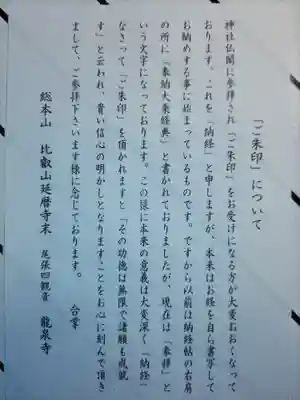 「ご朱印」について
神社仏閣に参拝され「ご朱印」をお受けになる方が大変おおくなって
おります。これを「納経」と申しますが、本来はお経を自ら書写して
お納めする事に始まっているものです。ですから以前は納経帖の右肩
の所に「奉納大乗経典」と書かれておりましたが、現在は「奉拝」と
いう文字になっております。この様に本来の意義は大変深く「納経」
なさって「ご朱印」を頂かれますと「その功徳は無限で諸願も成就
す」と云われ、貴い信心の明かしとなりますことをお心に刻んで頂き
まして、ご参拝下さいます様に念じております。
合掌
総本山 比叡山延暦寺末 尾張四観音 龍泉寺